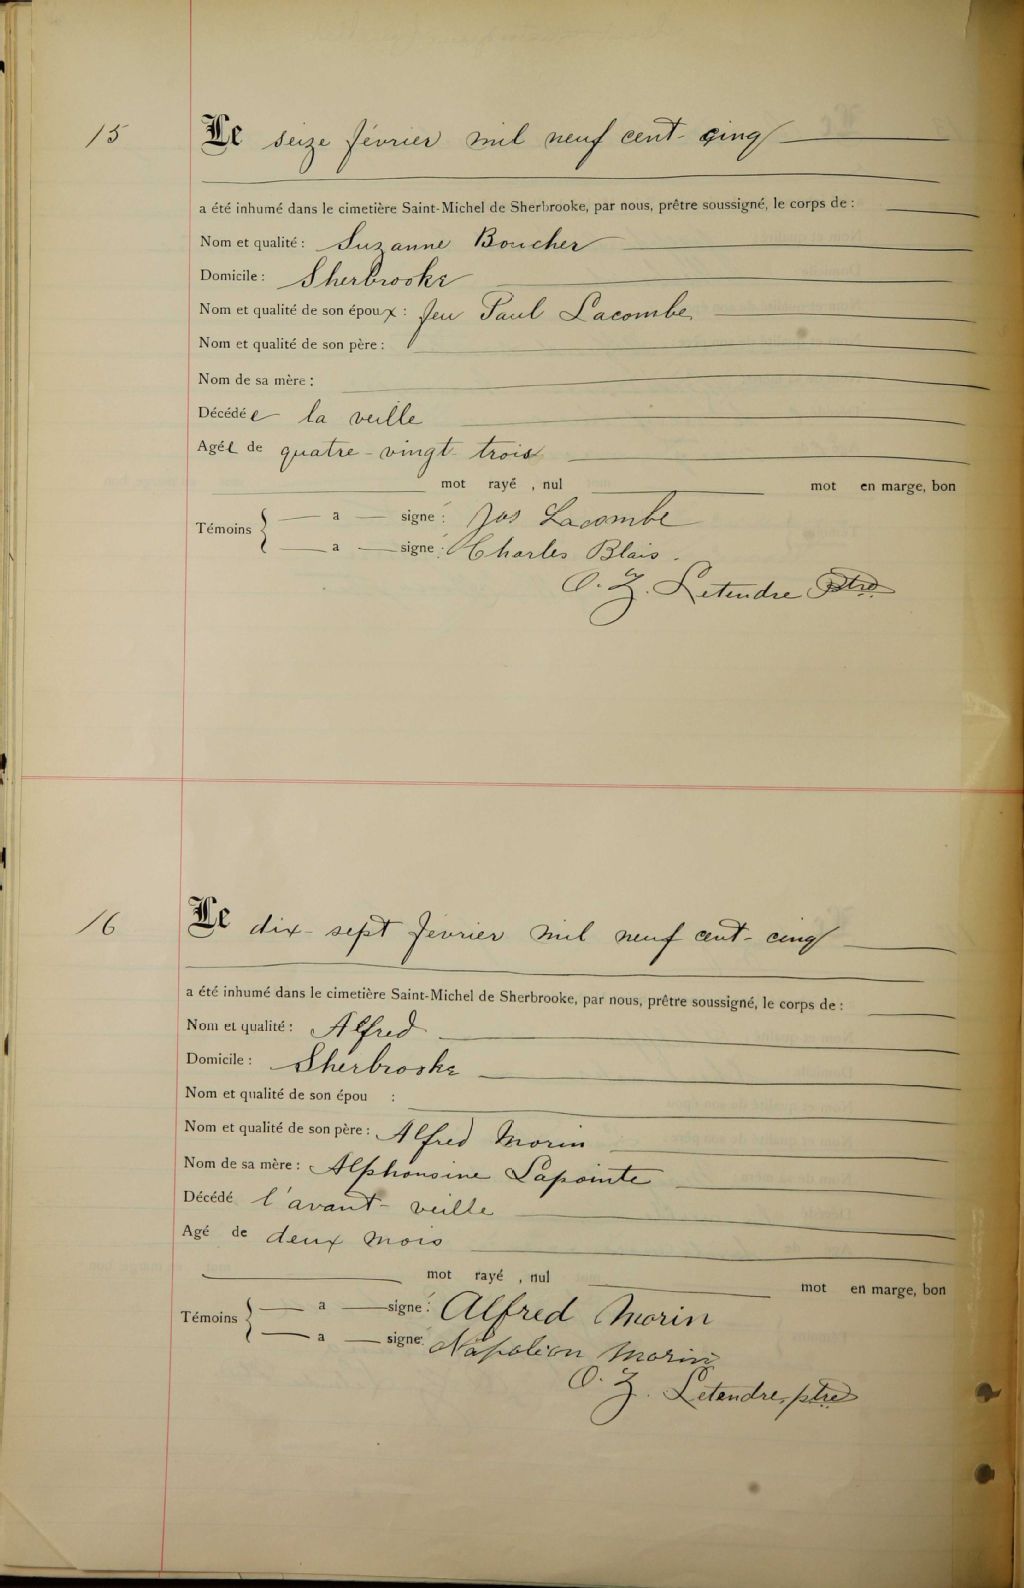 15
Le seize février mil neuf cent cinq
a été inhumé dans le cimetière Saint-Michel de Sherbrooke, par nous, prêtre soussigné, le corps de :
Nom et qualité : Suzanne Boucher
Domicile : Sherbrooke
Nom et qualité de son époux : feu Paul Lacombe
Nom et qualité de son père :
Nom de sa mère :
Décédée la veille
Agée de quatre-vingt-trois
mot rayé, nul mot en marge, bon
Témoins { a signé : Jos Lacombe
a signé : Charles Blais.
O. Z. Letendre Ptre
16
Le dix-sept février mil neuf cent-cinq
a été inhumé dans le cimetière Saint-Michel de Sherbrooke, par nous, prêtre soussigné, le corps de :
Nom et qualité : Alfred
Domicile : Sherbrooke
Nom et qualité de son épou :
Nom et qualité de son père : Alfred Morin
Nom de sa mère : Alphonsine Lapointe
Décédé l'avant-veille
Agé de deux mois
mot rayé, nul mot en marge, bon
Témoins { a signé : Alfred Morin
a signé : Napoleon Morin
O. Z. Letendre, ptre